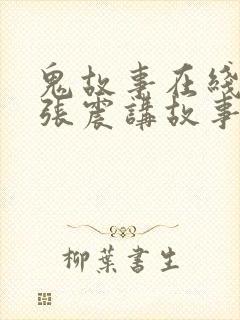 鬼故事在綫
張震講故事
柳葉書生